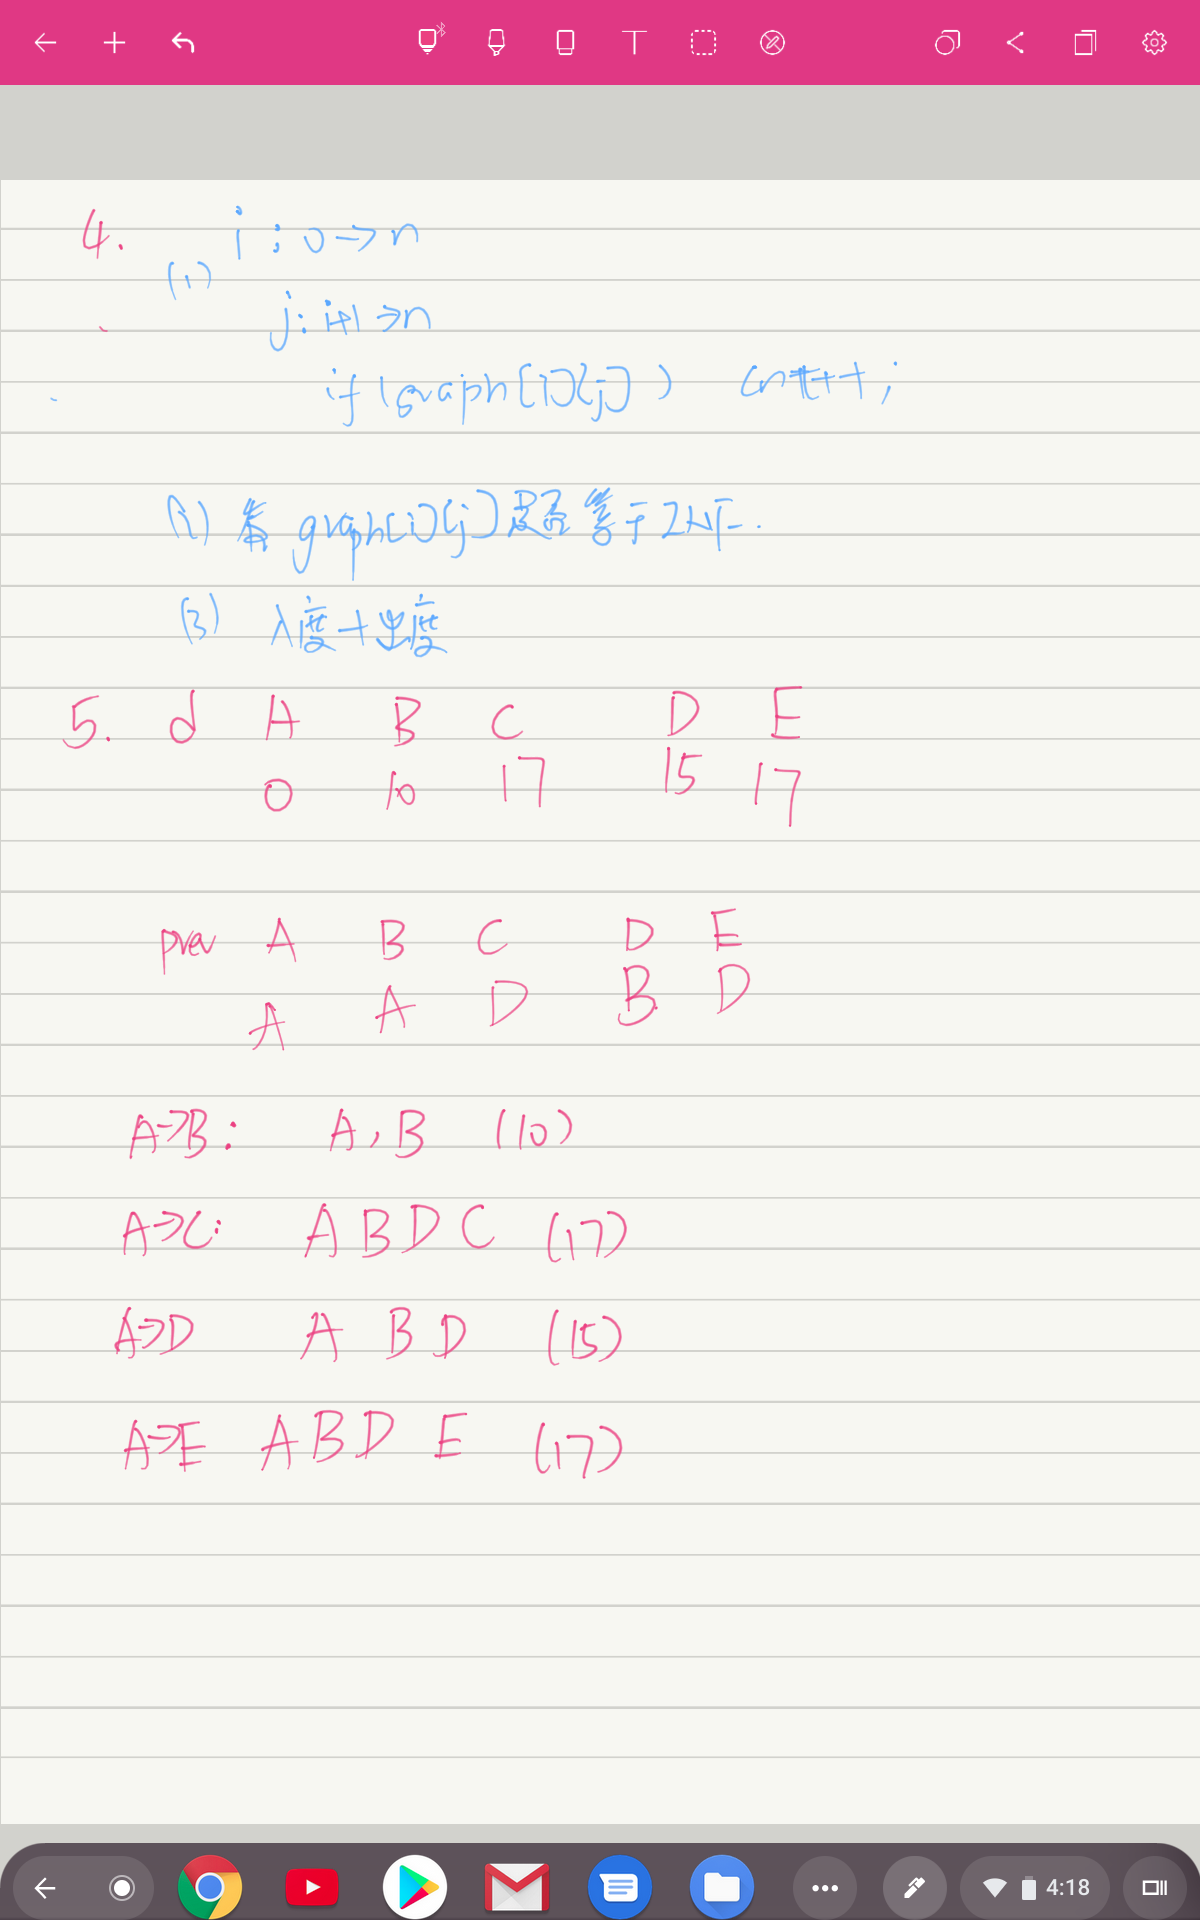 4.
i : 0 → n
(1)
j : i+1 → n
if (graph[i][j]) cnt++;
(2) 看 graph[i][j] 是否等于 INF.
(3) 入度 + 出度
5. d A B C D E
0 10 17 15 17
prev A B C D E
A A D B D
A→B: A, B (10)
A→C: A B D C (17)
A→D A B D (15)
A→E A B D E (17)
4:18